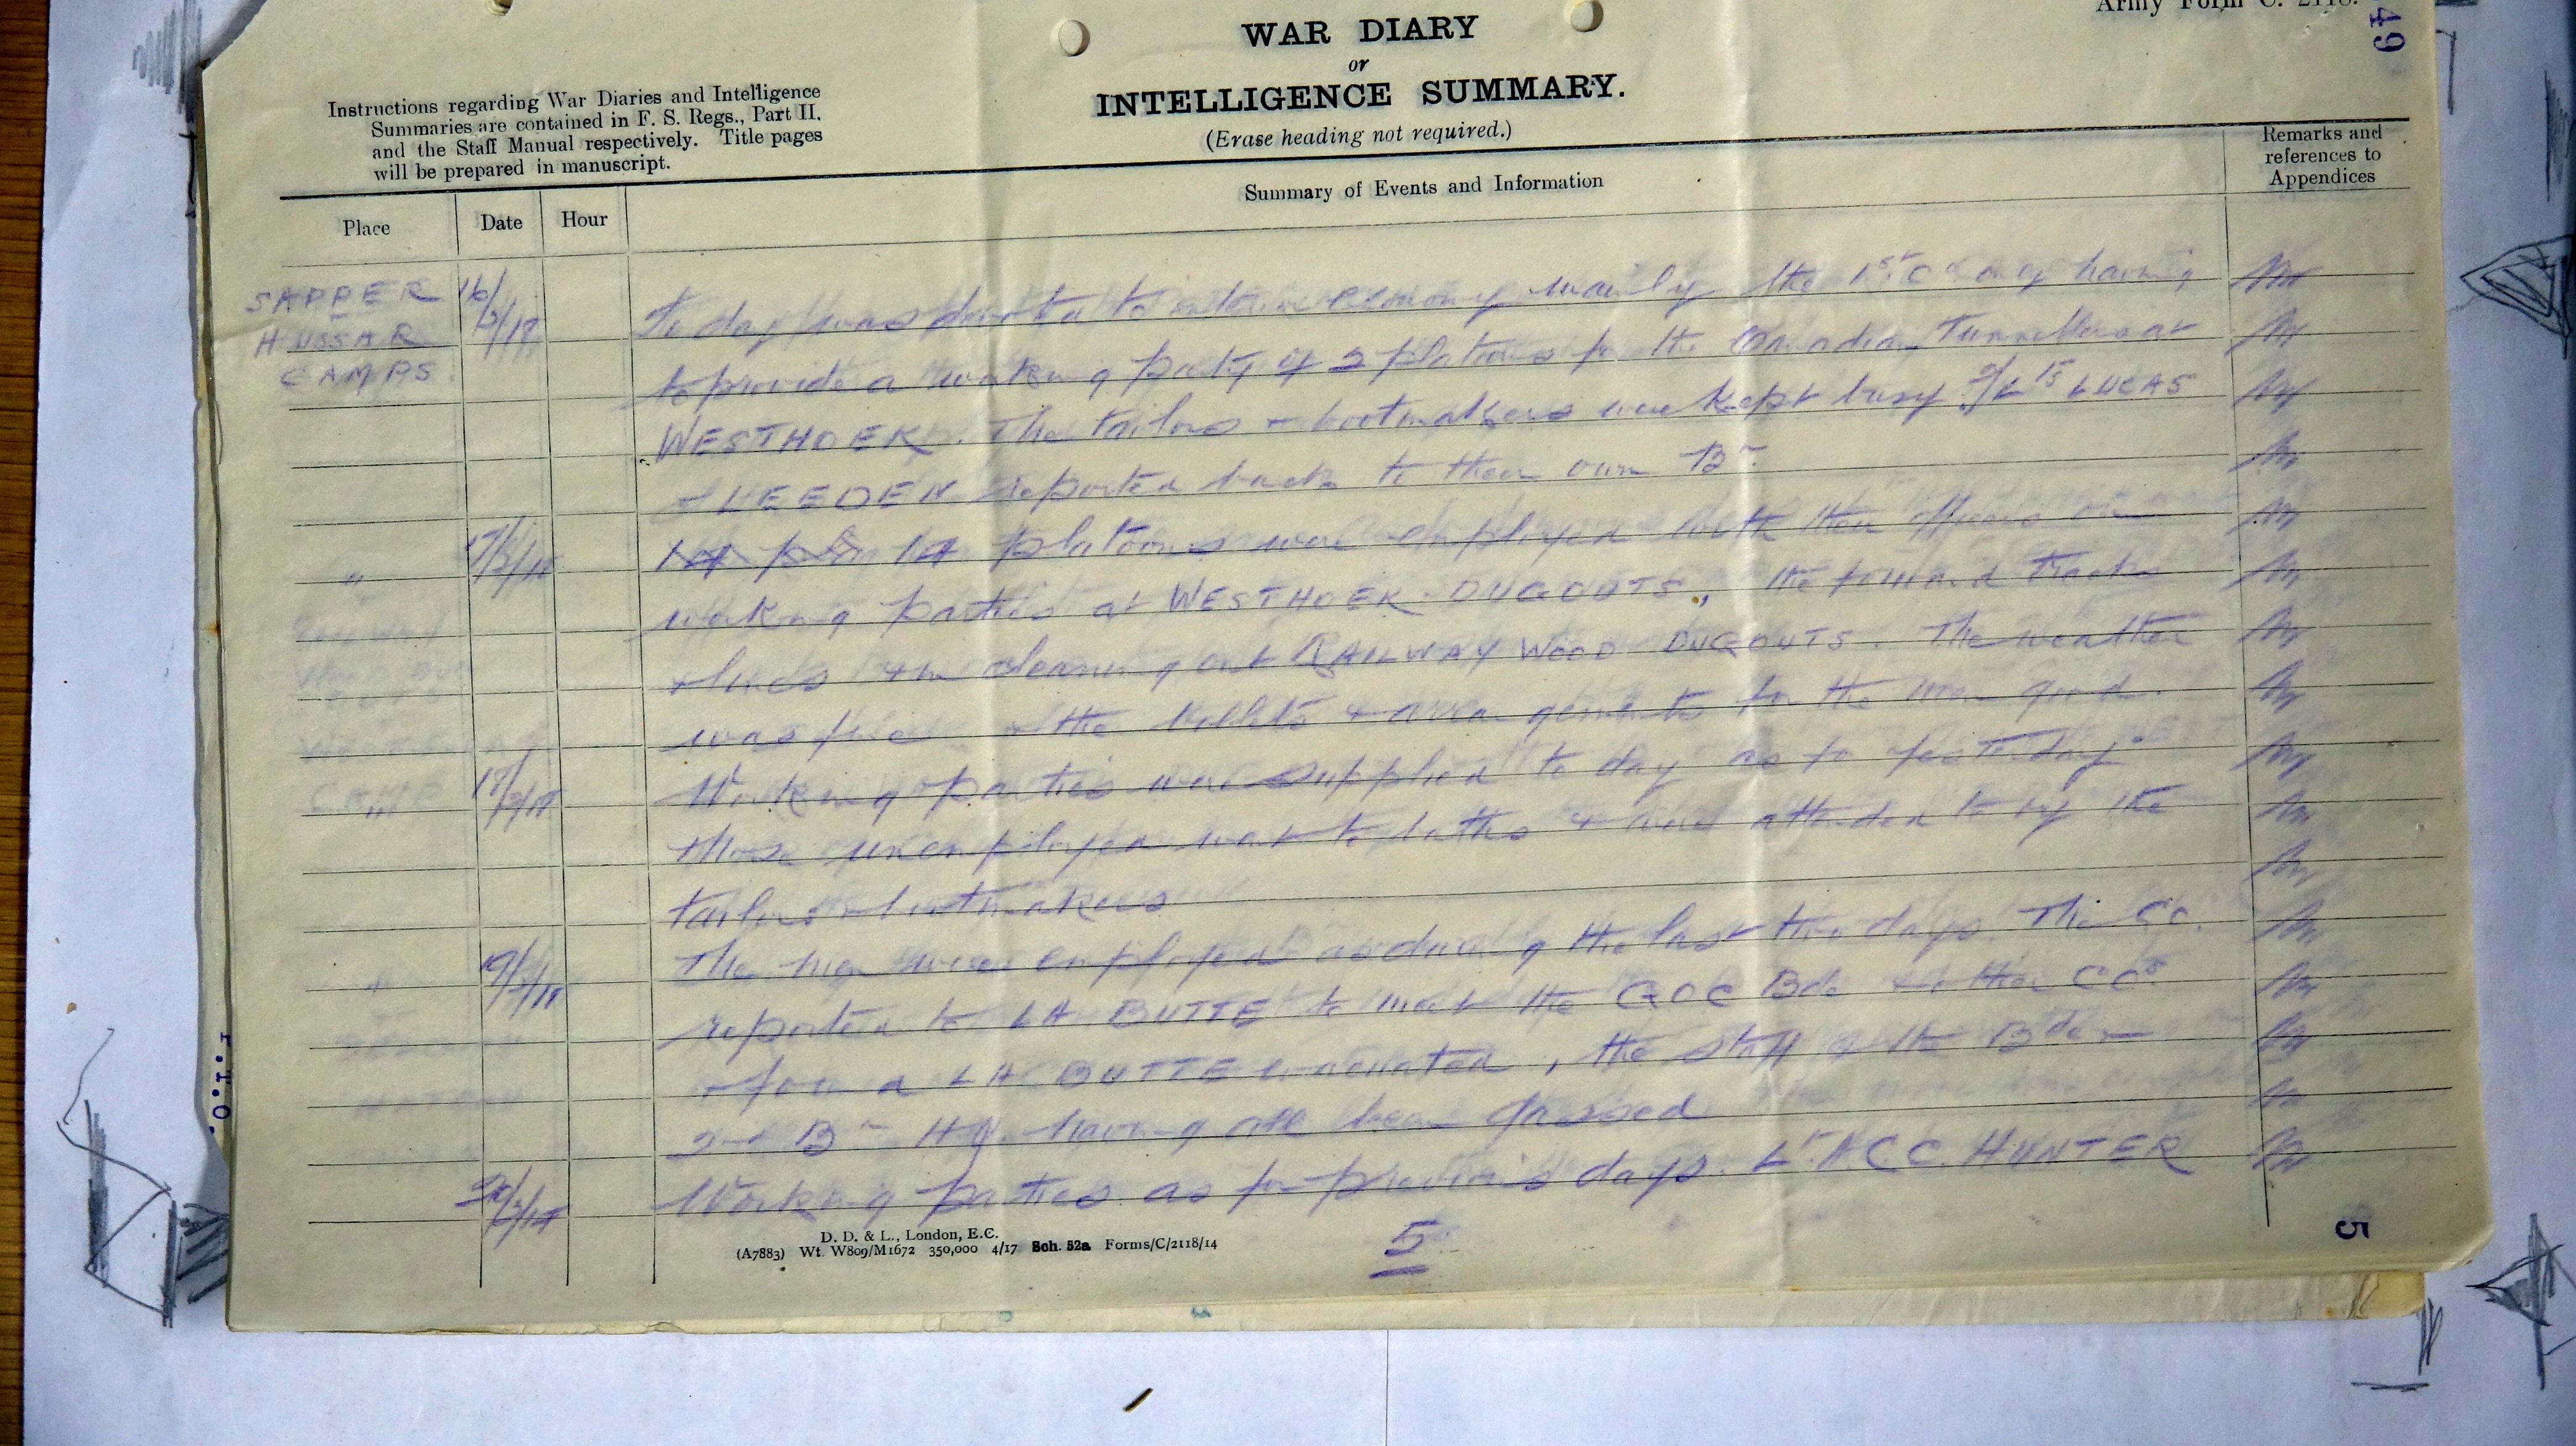 Army Form C. 2118.
49
WAR DIARY
or
INTELLIGENCE SUMMARY.
(Erase heading not required.)
Instructions regarding War Diaries and Intelligence
Summaries are contained in F. S. Regs., Part II.
and the Staff Manual respectively. Title pages
will be prepared in manuscript.
Remarks and
references to
Appendices
Summary of Events and Information
Place
Date
Hour
SAPPER 16/3/18 To day was devoted to interior economy mainly the 1st having
HUSSAR to provide a working party of 2 platoons for the Canadian Tunnellers at
CAMPS WESTHOEK. The tailors & bootmakers were kept busy 2/Lts LUCAS
& LEEDEN reported back to their own Bn.
" 17/3/18 14 platoons were employed with their officers on
working parties at WESTHOEK DUGOUTS, the forward tracks
& lines & in cleaning out RAILWAY WOOD DUGOUTS. The weather
was fine & the billets & area for the men good.
" 18/3/18 Working parties were supplied to day as for yesterday.
Those unemployed went to baths & were attended to by the
tailors & bootmakers
" 19/3/18 The men were employed as during the last two days. The CO.
reported to LA BUTTE to meet the GOC Bde & other COs
& found LA BUTTE evacuated, the staff of the Bde &
2nd Bn HQ. having all been gassed
20/3/18 Working parties as for previous days. Lt. A.C.C. HUNTER
D. D. & L., London, E.C.
(A7883) Wt. W809/M1672 350,000 4/17 Sch. 52a Forms/C/2118/14
5
5
P.T.O.